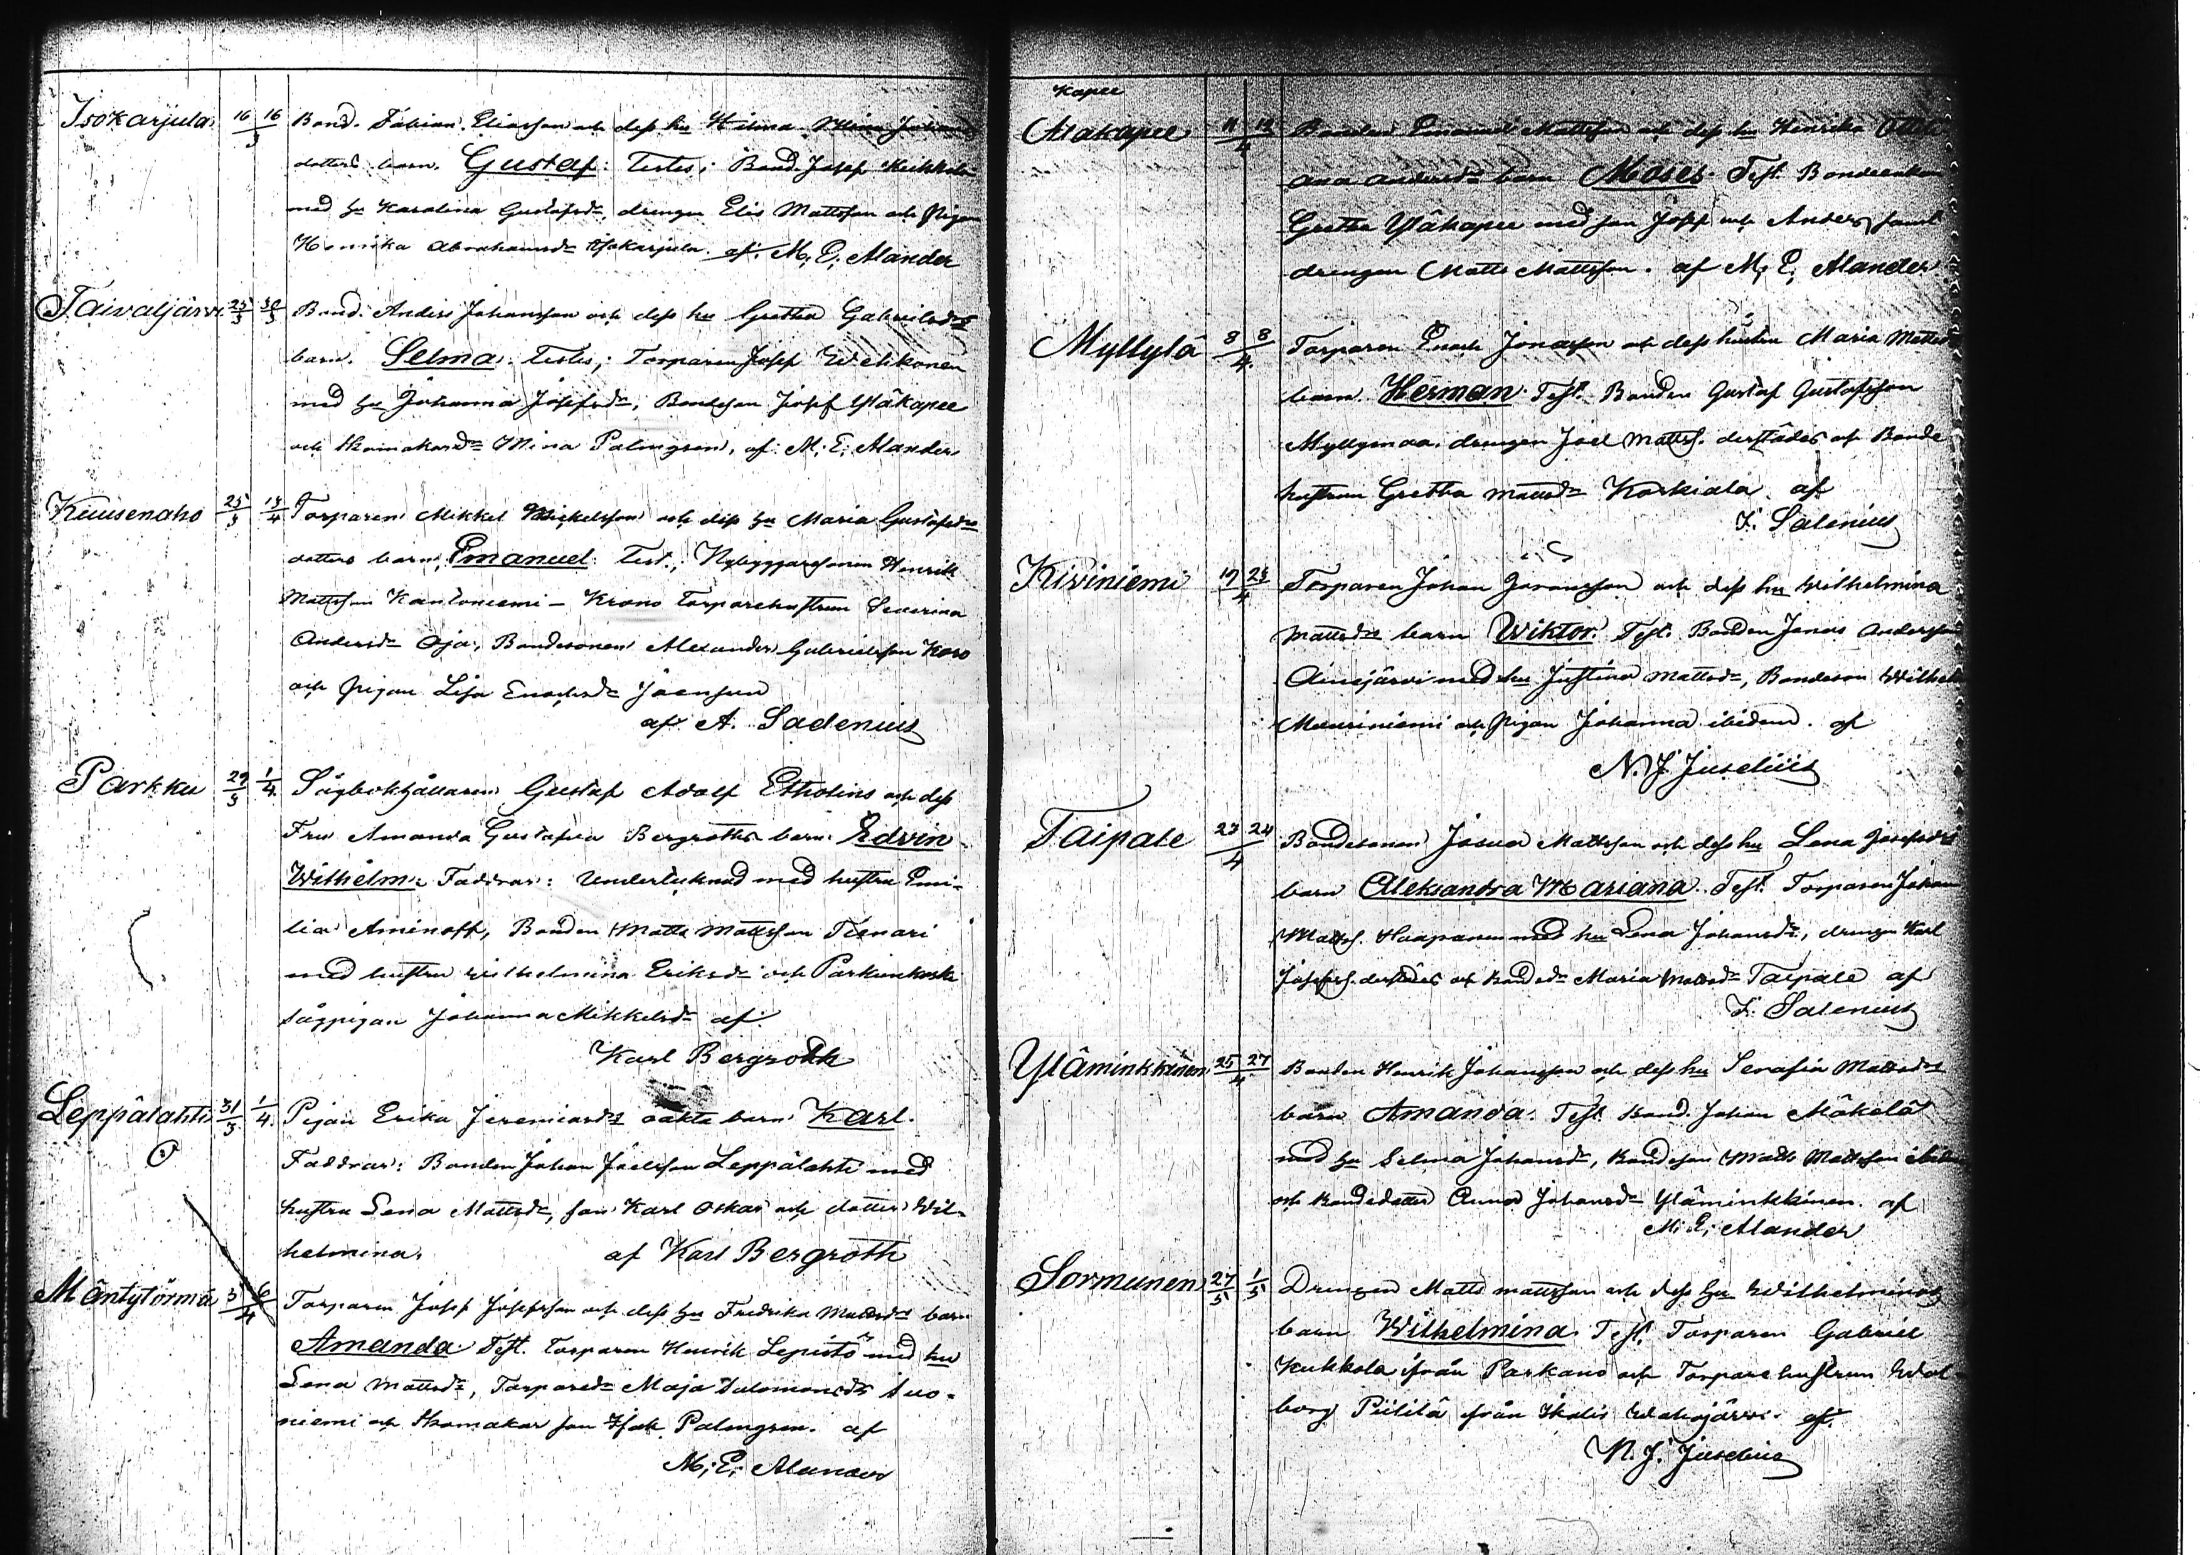 Isokarjula 16 16/3 Bond. Fabian Eliasson och dess hu Hilma
dotters barn. Gustaf. Testes; Bond. Josef Keikkala
med hu Karolina Gustafsdr, drengen Elis Mattsson och Pigan
Henrika Abrahamsdr Isokarjula. af. M. E. Alander
Taivaljärvi 25/3 30/3 Bond. Anders Johansson och dess hu Gretha Gabrielsdrs
barn. Selma. Testes; Torparen Josef Wehkonen
med hu Johanna Josefsdr, Bondeson Josef Yläkapee
och Skomakaredr Mina Palmgren, af. M. E. Alander
Kuusenaho 25/3 /4 Torparen Mikkel Mickelsson och dess hu Maria Gustafsdr
dotters barn, Emanuel. Test., Nybyggaresonen Henrik
Mattsson Kantoniemi – Krono Torparehustrun Severina
Andersdr Oja, Bondesonen Alexander Gabrielsson Karo
och pigan Lisa Enochsdr
af A. Sadenius
Parkku 29/3 1/4. Sågbokhållaren Gustaf Adolf Etholins och dess
Fru Amanda Gustafva Bergroths barn Edvin
Wilhelm. Faddrar: Undertecknad med hustru Emi-
lia Aminoff, Bonden Matts Mattsson Tienari
med hustru Wilhelmina Eriksdr och Parkunkosk
sågpigan Johanna Mikkelsdr af.
Karl Bergroth
Leppälahti 31/3 1/4. Pigan Erika Jeremiasdrs oäkta barn Karl.
Faddrar: Bonden Johan Joelsson Leppälahti med
hustru Lena Mattsdr, son Karl Oskar och dotter Wil-
helmina. af Karl Bergroth
Mäntytörmä 3 6/4 Torparen Josef Josefsson och dess hu Fredrika Mattsdrs barn
Amanda. Test. Torparen Henrik Lepistö med hu
Lena Mattsdr, Torparedr Maja Salomonsdr Suo-
niemi och Skomakar son Isak Palmgren. af
M. E. Alander
Kapee
Alakapee 11 12/4 Bonden Emanuel Mattsson och dess hu Henrika
ana Andersdr barn Moses. Test. Bondeenkan
Gretha Yläkapee med son Josef och Anders samt
drengen Matts Mattsson. af M. E. Alander
Myllylä 8 8/4. Torparen Enoch Jonasson och dess hustru Maria Mattsd
barn. Herman. Test. Bonden Gustaf Gustafsson
Myllymaa, drengen Joel Mattss. derstädes och Bonde
hustrun Gretha Mattsdr Korkiala. af
F. Salenius
Kiviniemi 17 24/4 Torparen Johan Göransson och dess hu Wilhelmina
Mattsdrs barn Wiktor. Test. Bonden Jonas Andersson
Ainesjärvi med hu Justina Mattsdr, Bondeson Wilhelm
Meuriniemi och pigan Johanna ibidem. af
N. J. Juselius
Taipale 23 24/4 Bondesonen Josua Mattsson och dess hu Lena Josefsdrs
barn Aleksandra Mariana. Test. Torparen Johan
Mattss. Haapanen med hu Lena Johansdr, drengen Karl
Josefss. derstädes och Bondedr Maria Mattsdr Taipale af
F. Salenius
Yläminkkinen 25 27/4. Bonden Henrik Johansson och dess hu Serafia Mattsdrs
barn Amanda. Test. Bond. Johan Mäkelä
med hu Selma Johansdr, Bondeson Matts Mattsson ibidem
och Bondedotter Anna Johansdr Yläminkkinen. af
M. E. Alander
Sormunen 27/5 1/5 Drengen Matts Mattsson och dess hu Wilhelminas
barn Wilhelmina. Test. Torparen Gabriel
Kukkola ifrån Parkano och Torparehustrun Wal-
borg Piililä ifrån Ikalis Wahojärvi. af.
N. J. Juselius